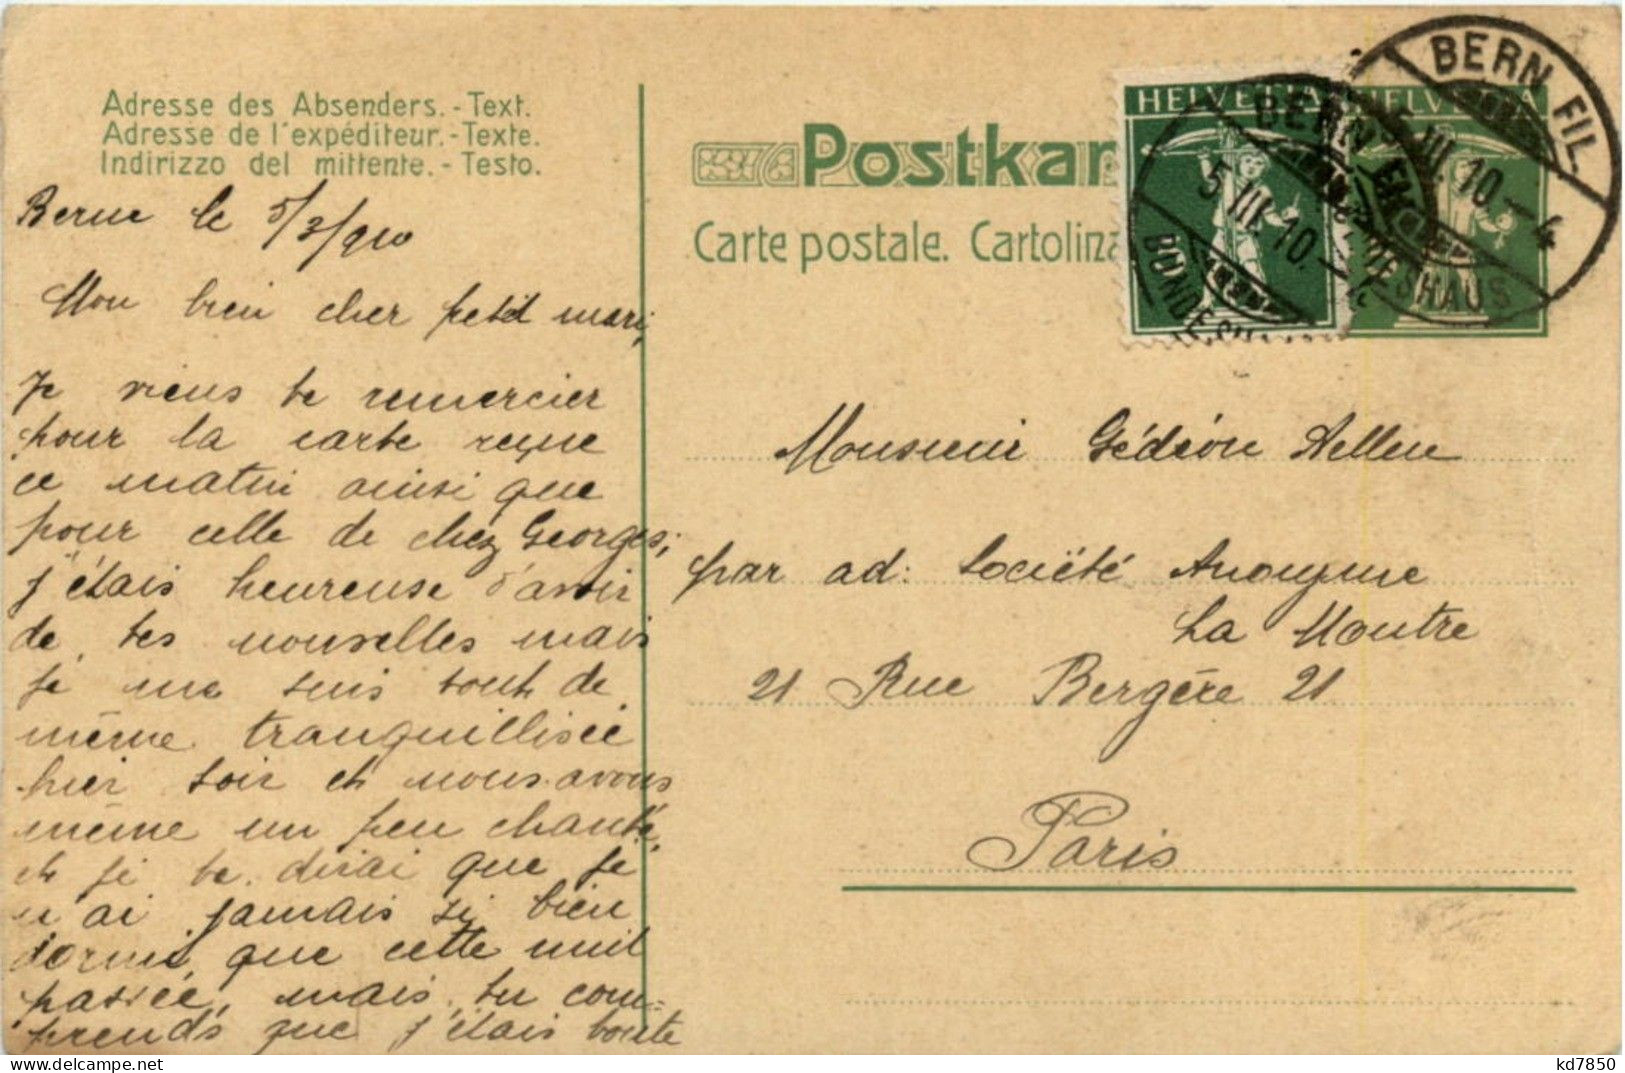 Adresse des Absenders.-Text.
Adresse de l'expéditeur.-Texte.
Indirizzo del mittente.-Testo.
Postkar
Carte postale. Cartolina
HELVETIA
HELVETIA
BERN
5.III.10.
BUNDESH
BERN FIL.
5.III.10.-4
BUNDESHAUS
Berne le 5/3/910
Mon bien cher petit mari,
Je viens te remercier
pour la carte reçue
ce matin ainsi que
pour celle de chez Georges;
j'étais heureuse d'avoir
de tes nouvelles mais
je me suis tout de
même tranquillisée
hier soir et nous avons
même un peu chanté,
et je te dirai que je
n'ai jamais si bien
dormi, que cette nuit
passée, mais tu com=
prends que j'étais toute
Monsieur Gédéon Aellen
par ad: Société Anonyme
La Montre
21 Rue Bergère 21
Paris
kd7850